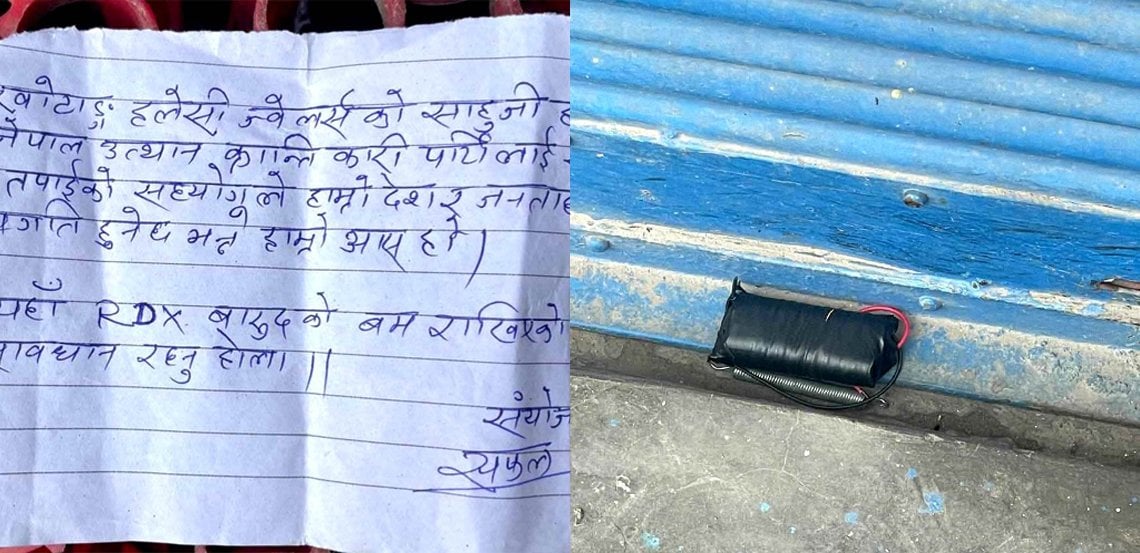 खोटाङ्ग हलेसी ज्वेलर्स को साहुजी
नेपाल उत्थान क्रान्ति कारी पार्टी लाई
तपाईको सहयोगले हाम्रो देश र जनता
प्रगति हुनेछ भन्ने हाम्रो आस हो।
यहाँ RDX बारुदको बम राखिएको
सावधान रहनु होला।।
संयोज
सफल